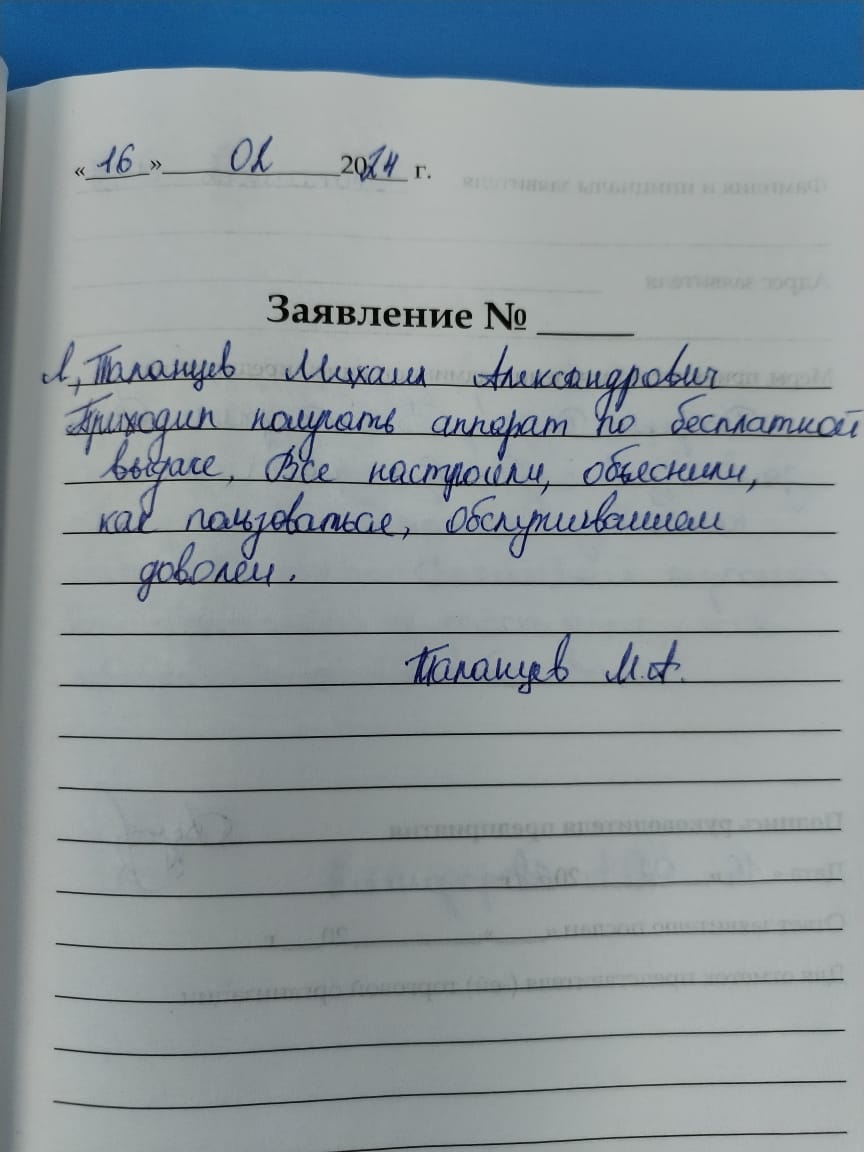 « 16 » 02 2024 г.
Заявление № ____
Я, Таланцев Михаил Александрович
Приходил получать аппарат по бесплатной
выдаче, Все настроили, объеснили,
как пользоваться, обслуживанием
доволен.
Таланцев М.А.